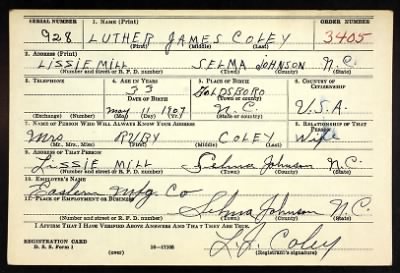 SERIAL NUMBER 1. NAME (Print) ORDER NUMBER
928 LUTHER JAMES COLEY 3405
(First) (Middle) (Last)
2. ADDRESS (Print)
LISSIE MILL SELMA JOHNSON N.C.
(Number and street or R. F. D. number) (Town) (County) (State)
3. TELEPHONE 4. AGE IN YEARS 5. PLACE OF BIRTH 6. COUNTRY OF CITIZENSHIP
33 GOLDSBORO
DATE OF BIRTH (Town or county)
May 11 1907 N-C U.S.A.
(Exchange) (Number) (Mo.) (Day) (Yr.) (State or country)
7. NAME OF PERSON WHO WILL ALWAYS KNOW YOUR ADDRESS 8. RELATIONSHIP OF THAT PERSON
Mrs RUBY COLEY Wife
(Mr., Mrs., Miss) (First) (Middle) (Last)
9. ADDRESS OF THAT PERSON
Lissie Mill Selma Johnson N.C.
(Number and street or R. F. D. number) (Town) (County) (State)
10. EMPLOYER'S NAME
Eastern Mfg. Co
11. PLACE OF EMPLOYMENT OR BUSINESS
Selma Johnson N.C.
(Number and street or R. F. D. number) (Town) (County) (State)
I AFFIRM THAT I HAVE VERIFIED ABOVE ANSWERS AND THAT THEY ARE TRUE.
REGISTRATION CARD
D. S. S. Form 1 (over) 16-17105 L.J. Coley
(Registrant's signature)